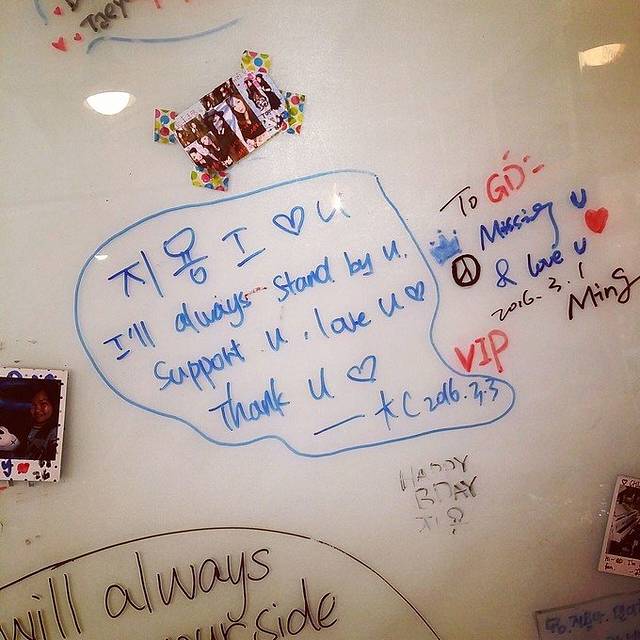 지용 I ♡ U
I'll always stand by u.
Support u. love u ♡
Thank u ♡
2016.3.3
To GD
Missing u
& love u
2016.3.1
Ming
VIP
HAPPY
BDAY
지용
will always
your side